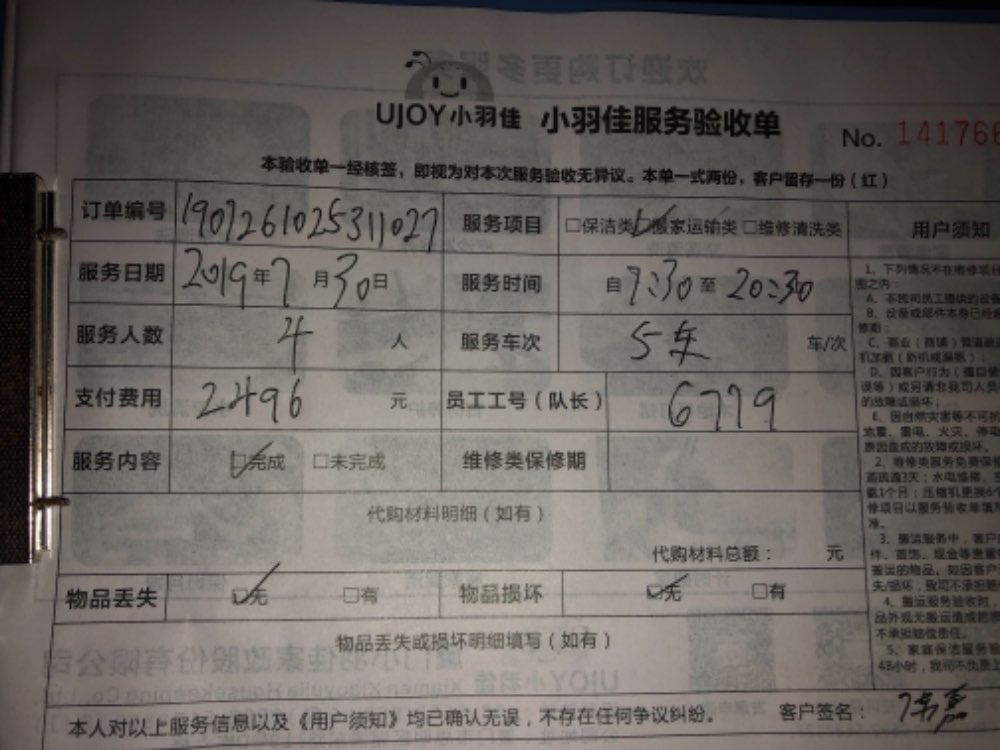 UJOY小羽佳 小羽佳服务验收单
No. 141766
本验收单一经核签，即视为对本次服务验收无异议。本单一式两份，客户留存一份（红）
订单编号 190726102531027 服务项目 □保洁类 ☑搬家运输类 □维修清洗类 用户须知
服务日期 2019年7月30日 服务时间 自 7:30 至 20:30
服务人数 4 人 服务车次 5车 车/次
支付费用 2496 元 员工工号（队长） 6779
服务内容 ☑完成 □未完成 维修类保修期
代购材料明细（如有）
代购材料总额： 元
物品丢失 ☑无 □有 物品损坏 ☑无 □有
物品丢失或损坏明细填写（如有）
本人对以上服务信息以及《用户须知》均已确认无误，不存在任何争议纠纷。 客户签名：
1、下列情况不在维修项
围之内：
A、不我司员工提供的设备
B、设备或部件本身已经
修期：
C、商业（商铺）管道疏
机加氨（新机或漏氨）
D、因客户行为（擅自使
误等）或另请非我司人员
的故障或损坏；
E、因自然灾害等不可抗
地震、雷电、火灾、停电
原因造成的故障或损坏。
2、维修类服务免费保修
道疏通3天；水电维修、
氨1个月；压缩机更换6个
修项目以服务验收单填写
准。
3、搬运服务中，客户
件、首饰、现金等贵重
搬运的物品，如因客户
失/损坏，我司不承担赔
4、搬运服务验收时，
品外观无搬运造成损
不承担赔偿责任。
5、家庭保洁服务验
48小时，我司不负责